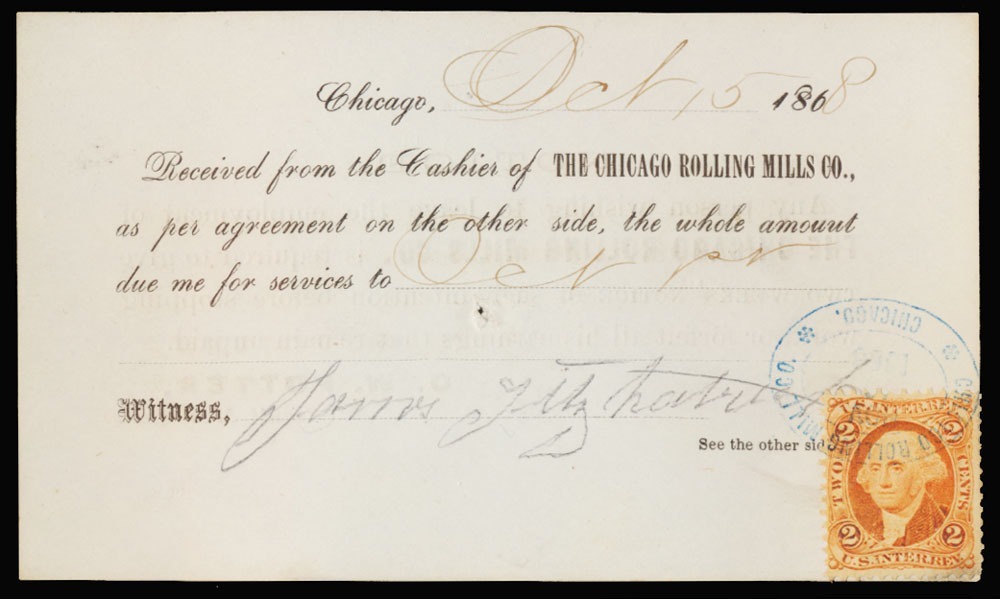 Chicago, Oct 15 1868
Received from the Cashier of THE CHICAGO ROLLING MILLS CO.,
as per agreement on the other side, the whole amount
due me for services to Oct 1st
Witness, James Fitzpatrick
See the other sid
CHICAGO ROLLING MILL CO. * CHICAGO. *
U.S. INTER. REV.
2 2
TWO CENTS
2 2
U.S. INTER. REV.